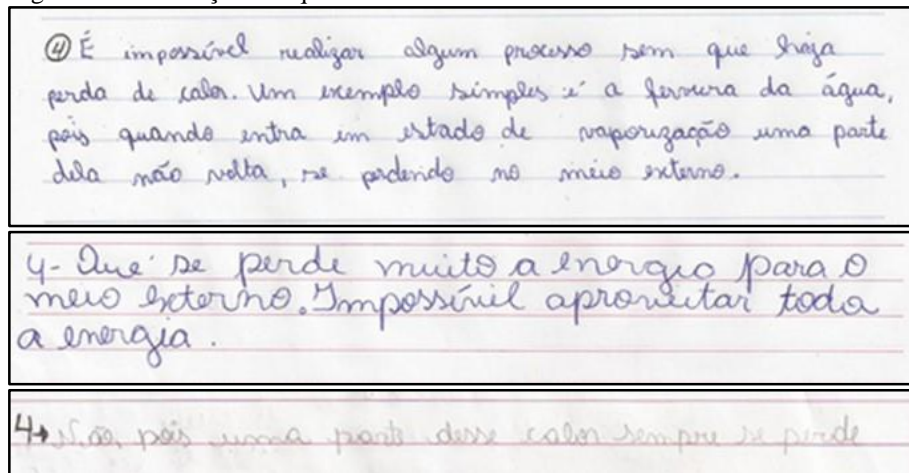 ④ É impossível realizar algum processo sem que haja
perda de calor. Um exemplo simples é a fervura da água,
pois quando entra em estado de vaporização uma parte
dela não volta, se perdendo no meio externo.
4- Que se perde muito a energia para o
meio externo. Impossível aproveitar toda
a energia.
4→ Não, pois uma parte desse calor sempre se perde